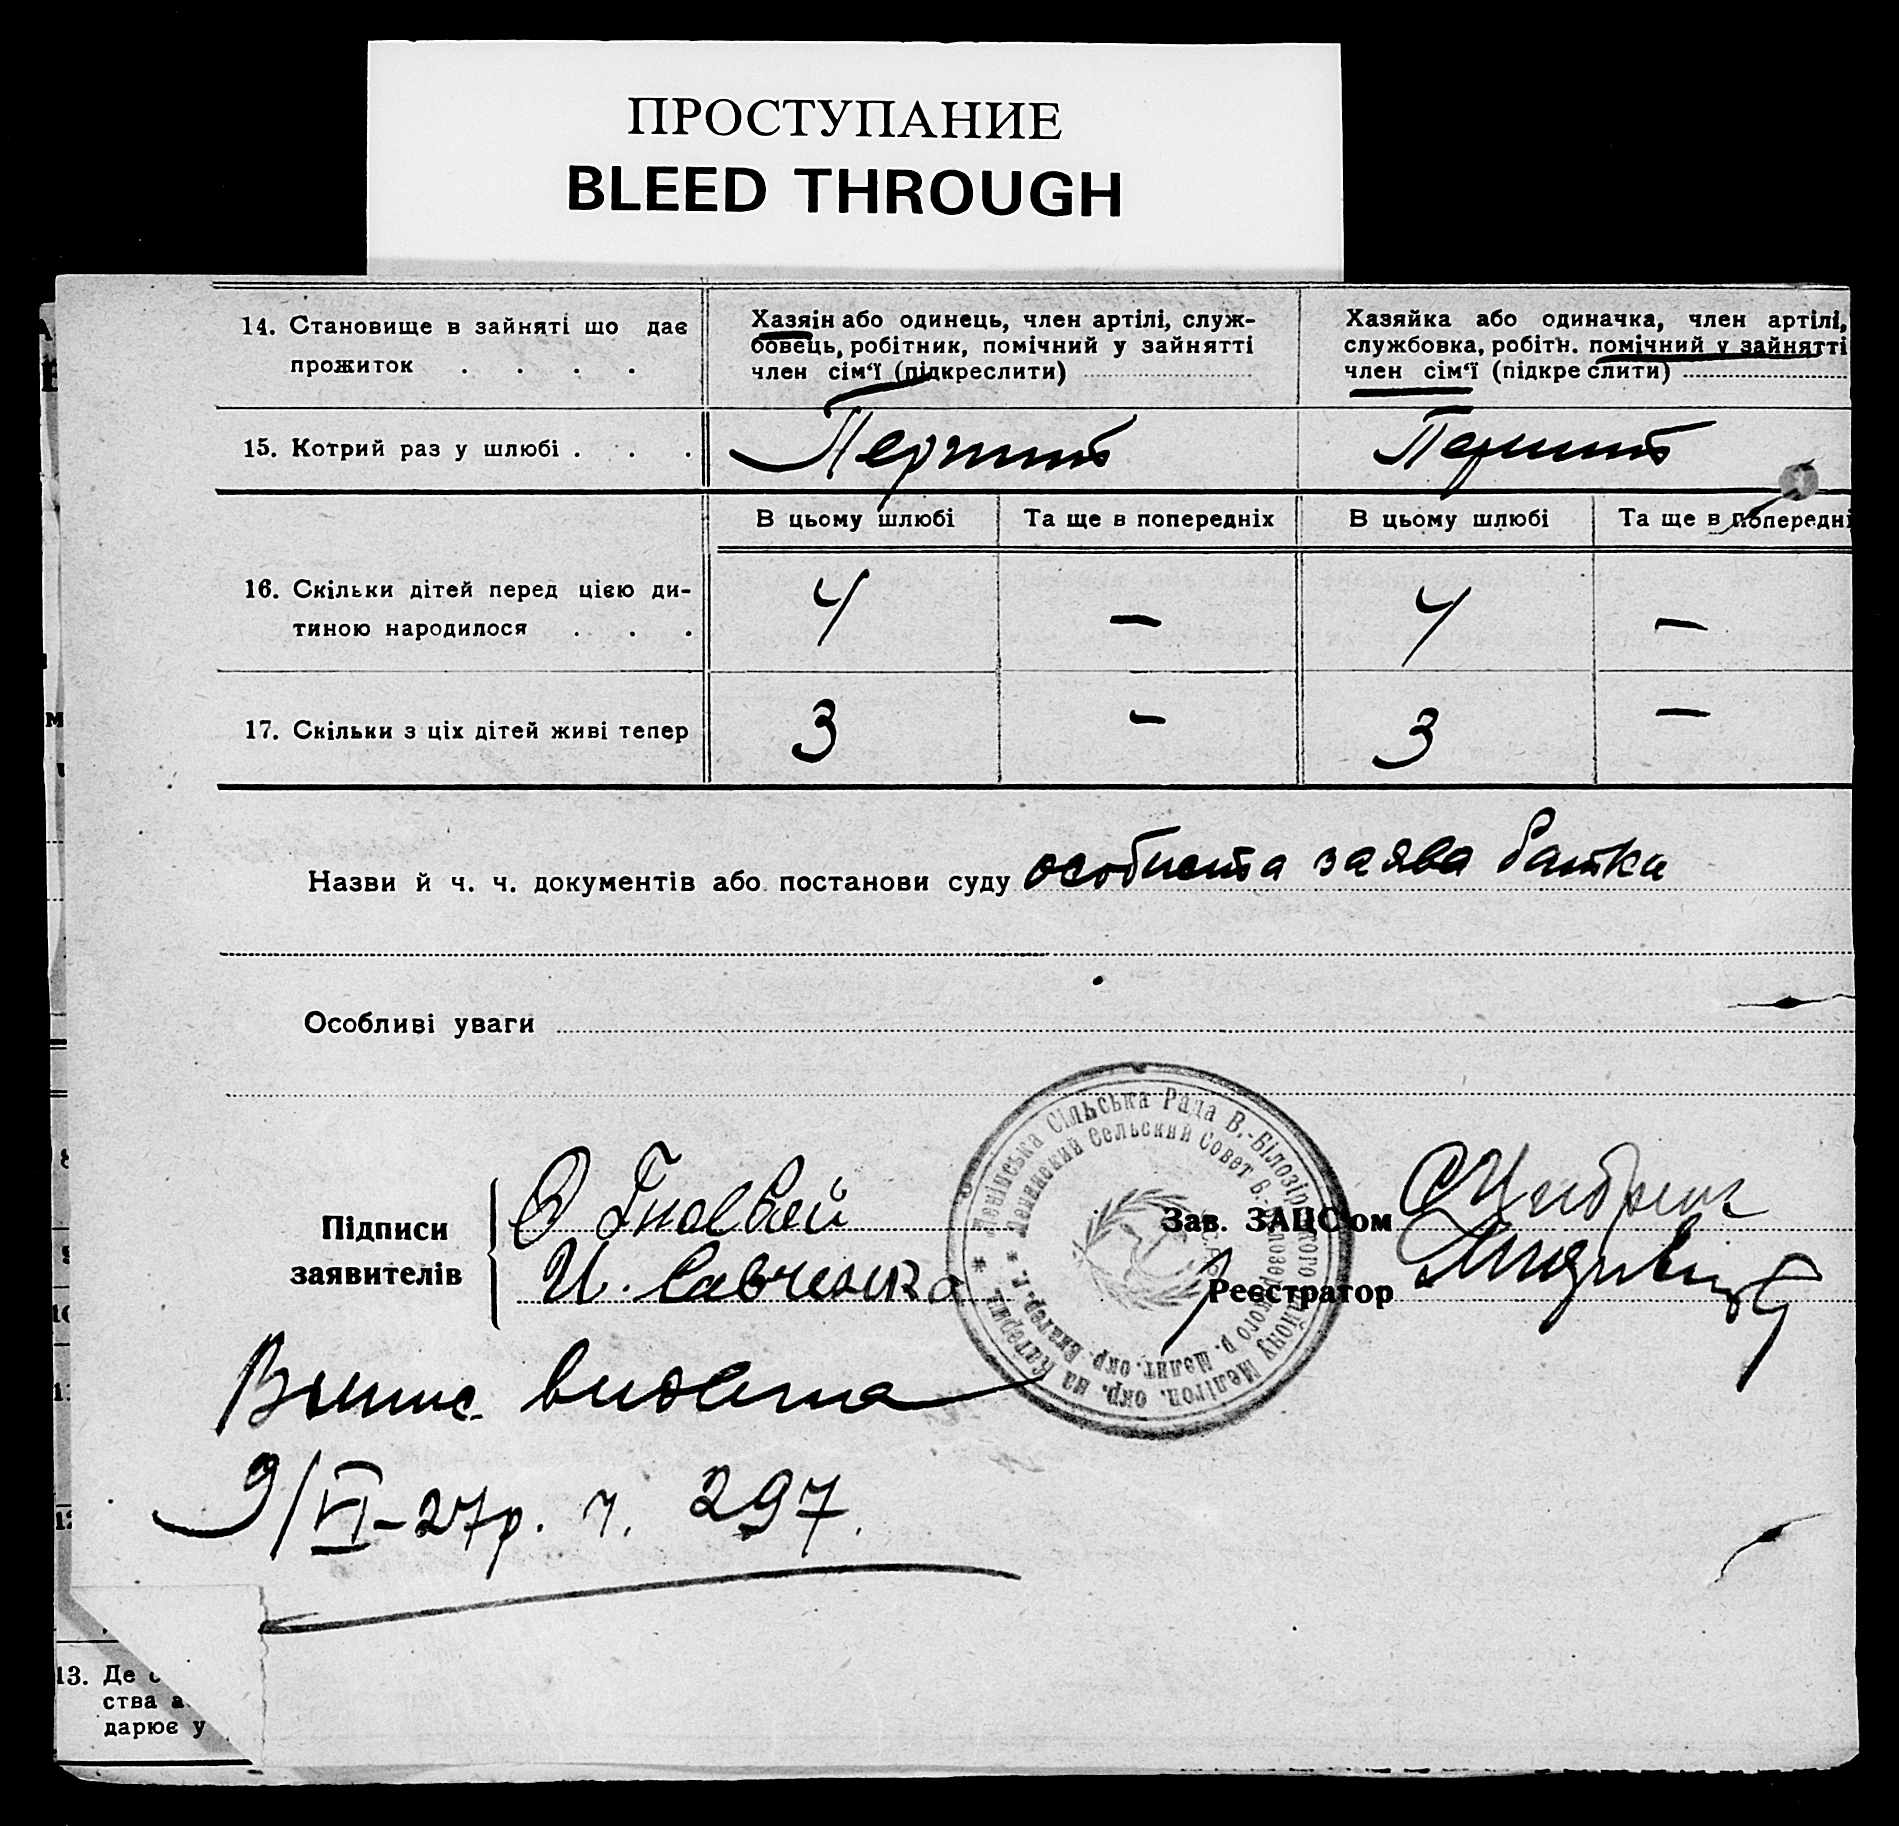 ПРОСТУПАНИЕ
BLEED THROUGH
14. Становище в зайняті що дає прожиток . . . .
Хазяін або одинець, член артілі, служ-
бовець, робітник, помічний у зайнятті
член сім'ї (підкреслити)
Хазяйка або одиначка, член артілі,
службовка, робітн. помічний у зайнятті
член сім'ї (підкреслити)
15. Котрий раз у шлюбі . . .
Перший
Перший
В цьому шлюбі
Та ще в попередніх
В цьому шлюбі
Та ще в попередні
16. Скільки дітей перед цією ди-
тиною народилося . . .
4 — 4 —
17. Скільки з ціх дітей живі тепер
3 - 3 —
Назви й ч. ч. документів або постанови суду особиста заява батька
Особливі уваги
Підписи
заявителів
И. Савченко
Зав. ЗАЦС'ом
Реєстратор
* Ленінська Сільська Рада В.-Білозірського району Мелітоп. окр. на Катерин.
* Ленинский Сельский Совет В.-Белозерского р. Мелит. окр. Екатер. г.
Випис видата
9/VI-27р. ч. 297.
13. Де
ства а
дарює у